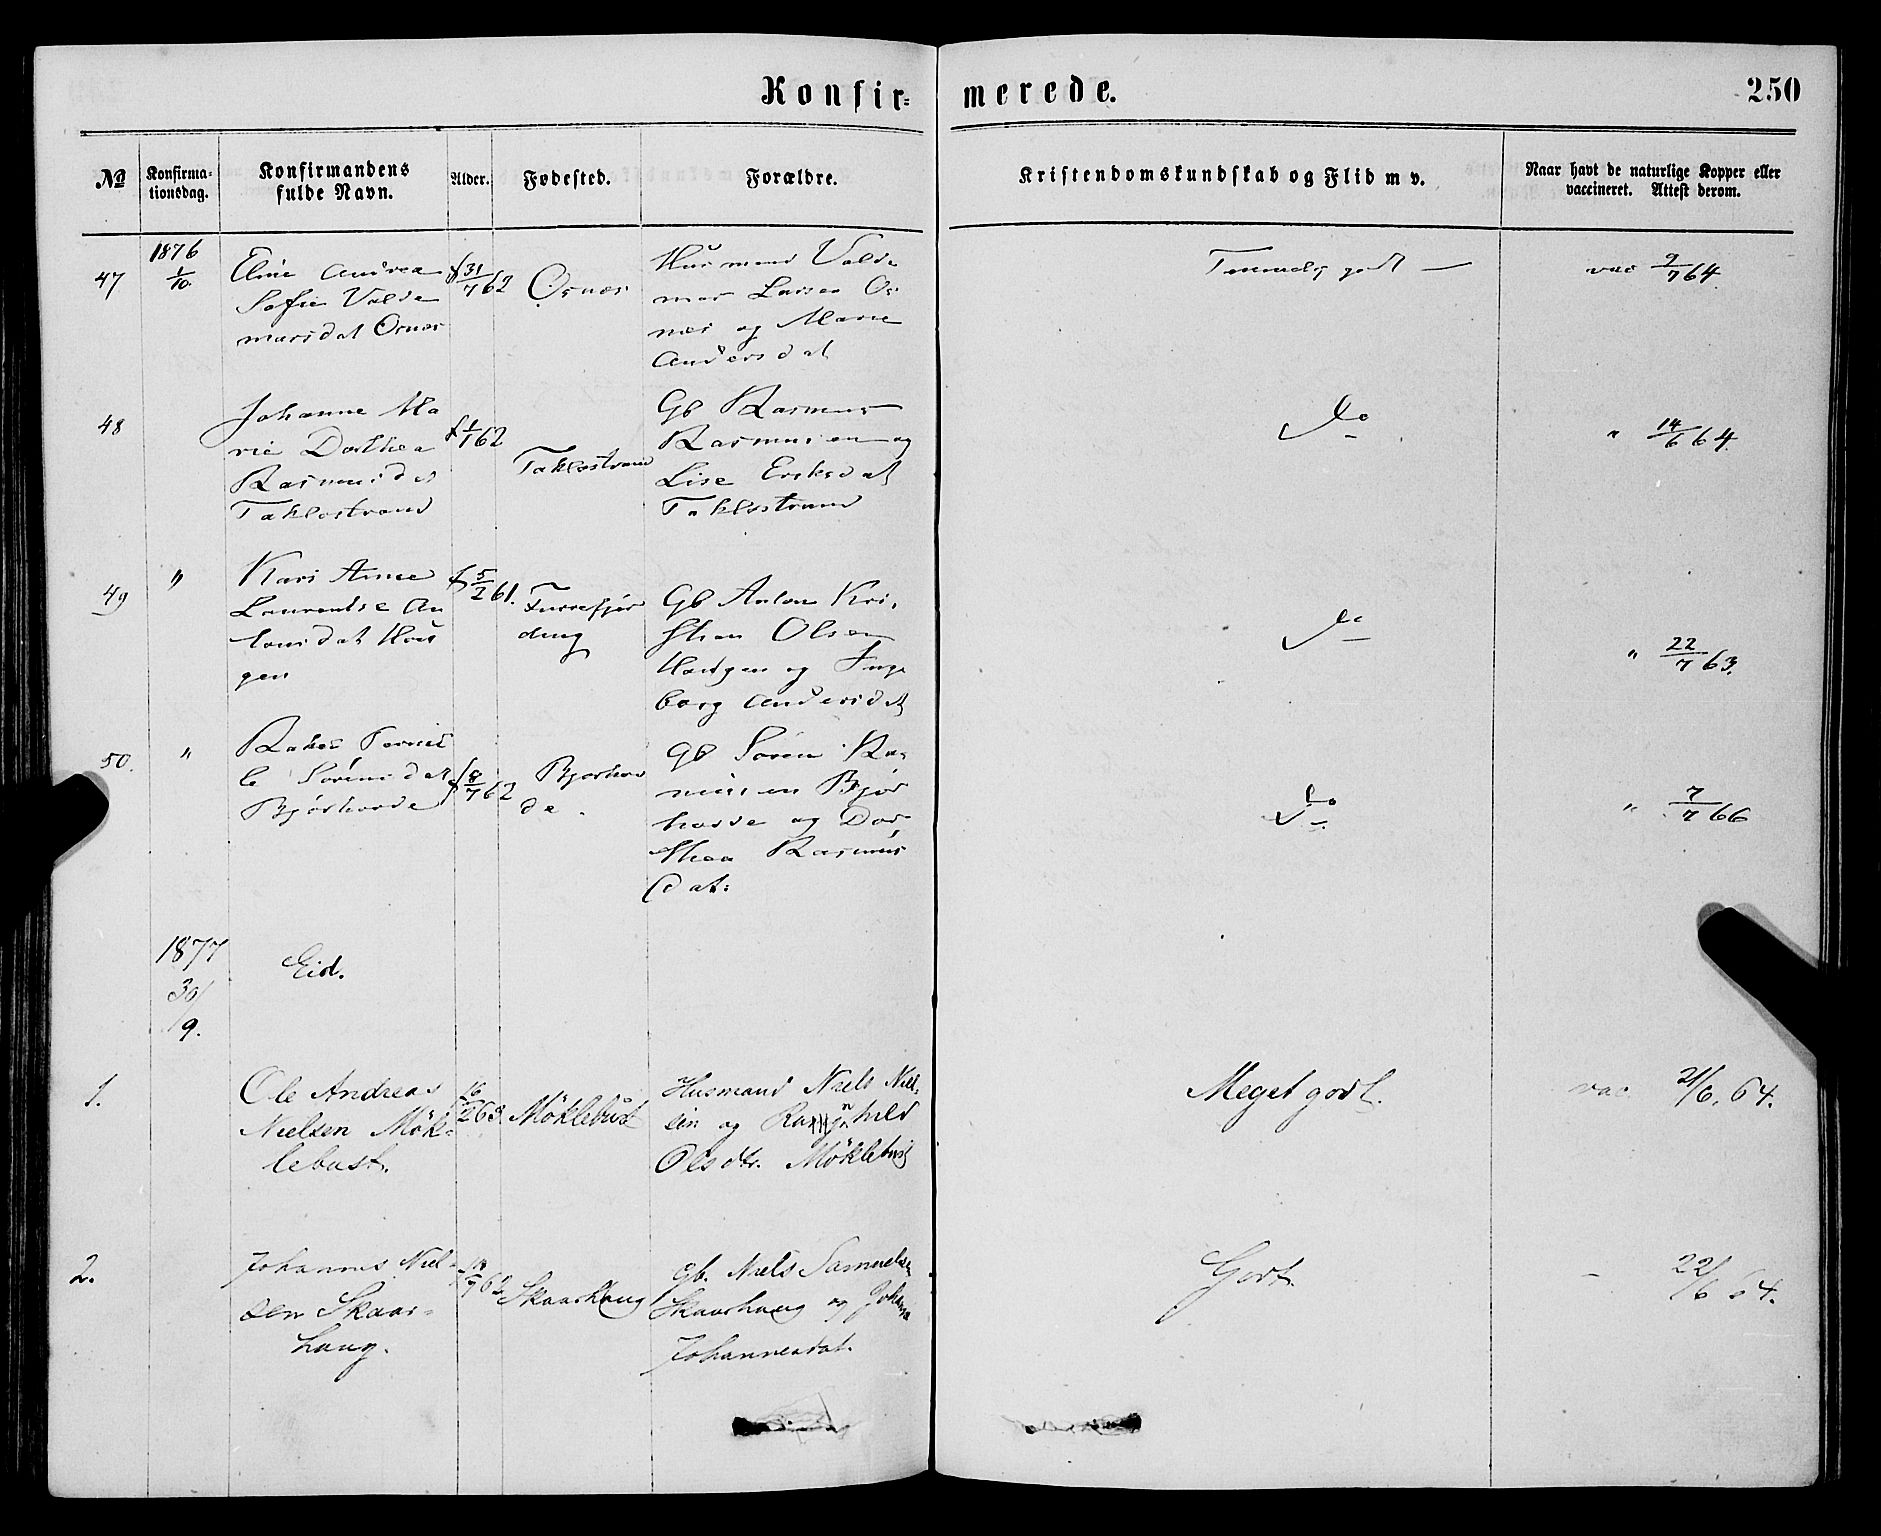 Konfir-
merede.
250
No
Konfirma-
tionsdag.
Konfirmandens
fulde Navn.
Alder.
Fødested.
Forældre.
Kristendomskundskab og Flid m v.
Naar havt de naturlige Kopper eller
vaccineret. Attest derom.
47
1876
1/10
Eline Andrea
Sofie Valde
marsdat Osnes
f 31/7 62
Osnes
Husmand Valde
mar Larsen Os
nes og Marie
Andersdat
Temmelig godt —
vac 9/7 64.
48
Johanne Ma
rie Dorthea
Rasmusdat
Taklostrand
f 1/1 62
Taklostrand
Gb Rasmus
Rasmussen og
Lise Eriksdat
Taklostrand
Do
" 14/6 64.
49
"
Kari Anne
Laurentse An
tonsdat Hau
gen
f 5/2 61.
Furrefjor
ding
Gb Anton Kri-
stian Olsen
Haugen og Inge
borg Andersdat
Do
" 22/7 63.
50.
"
Rakel Pernil
le Sørensdat
Bjørhovde
f 8/7 62
Bjørhov
de.
Gb Søren Ras
mussen Bjør
hovde og Dor
thea Rasmus
dat:
Do
" 7/7 66
1877
30/9.
Eid.
1.
Ole Andreas
Nielsen Mök-
lebust.
16/2 63.
Möklebust
Husmand Niels Niel-
sen og Ragnhild
Olsdtr. Möklebust
Meget godt.
vac 21/6. 64.
2.
Johannes Niel-
sen Skaar-
haug.
Skaarhaug
gb. Niels Samuelsen
Skaarhaug og Johanna
Johannesdat.
Godt.
– 22/6 64.